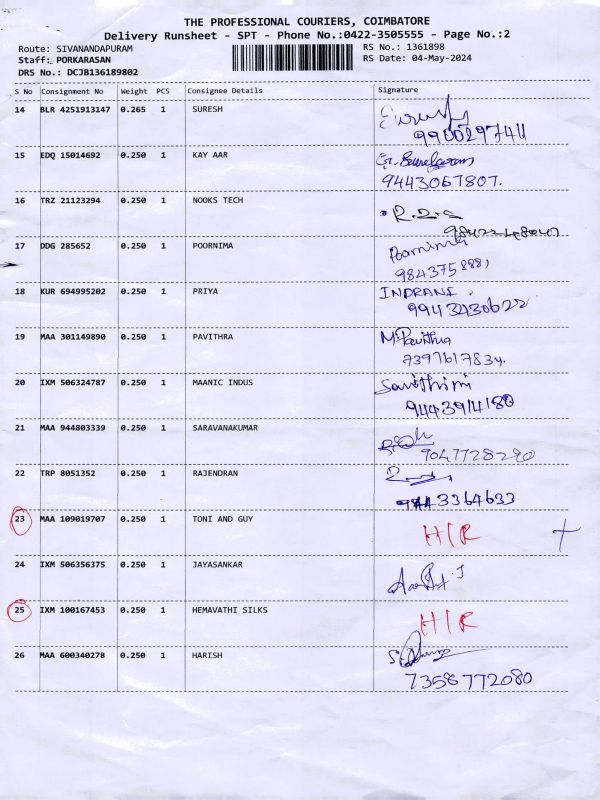 THE PROFESSIONAL COURIERS, COIMBATORE
Delivery Runsheet - SPT - Phone No.:0422-3505555 - Page No.:2
Route: SIVANANDAPURAM RS No.: 1361898
Staff: PORKARASAN RS Date: 04-May-2024
DRS No.: DCJB136189802
S No Consignment No Weight PCS Consignee Details Signature
14 BLR 4251913147 0.265 1 SURESH
15 EDQ 15014692 0.250 1 KAY AAR
9443067807.
16 TRZ 21123294 0.250 1 NOOKS TECH
17 DDG 285652 0.250 1 POORNIMA Poornima
18 KUR 694995202 0.250 1 PRIYA INDRANI.
9943430622
19 MAA 301149890 0.250 1 PAVITHRA M.Pavithra
7397617834.
20 IXM 506324787 0.250 1 MAANIC INDUS
9443914180
21 MAA 944803339 0.250 1 SARAVANAKUMAR
9047728290
22 TRP 8051352 0.250 1 RAJENDRAN
9443364633
23 MAA 109019707 0.250 1 TONI AND GUY H/R
24 IXM 506356375 0.250 1 JAYASANKAR
25 IXM 100167453 0.250 1 HEMAVATHI SILKS H/R
26 MAA 600340278 0.250 1 HARISH
7358772080